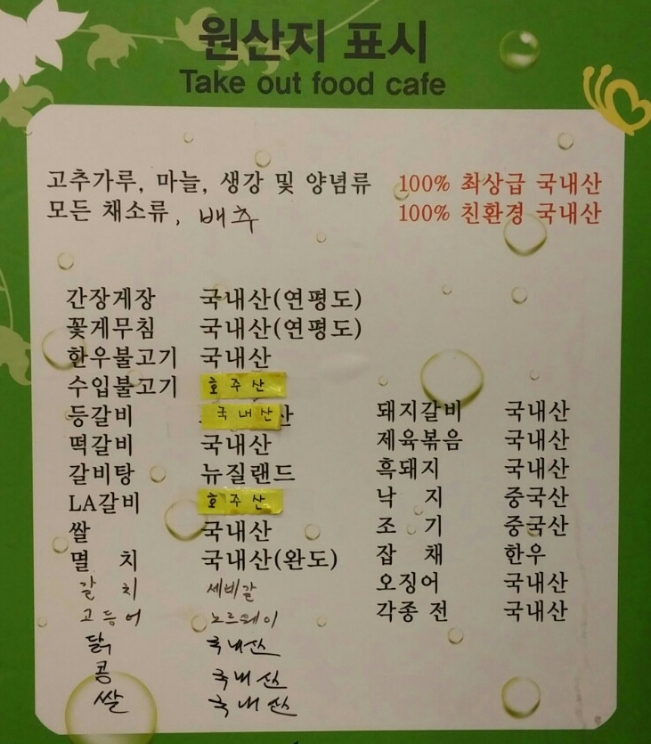 원산지 표시
Take out food cafe
고추가루, 마늘, 생강 및 양념류 100% 최상급 국내산
모든 채소류, 배추 100% 친환경 국내산
간장게장 국내산(연평도)
꽃게무침 국내산(연평도)
한우불고기 국내산
수입불고기 호주산
등갈비 국내산
떡갈비 국내산
갈비탕 뉴질랜드
LA갈비 호주산
쌀 국내산
멸 치 국내산(완도)
갈 치 세네갈
고등어 노르웨이
닭 국내산
콩 국내산
쌀 국내산
돼지갈비 국내산
제육볶음 국내산
흑돼지 국내산
낙 지 중국산
조 기 중국산
잡 채 한우
오징어 국내산
각종 전 국내산